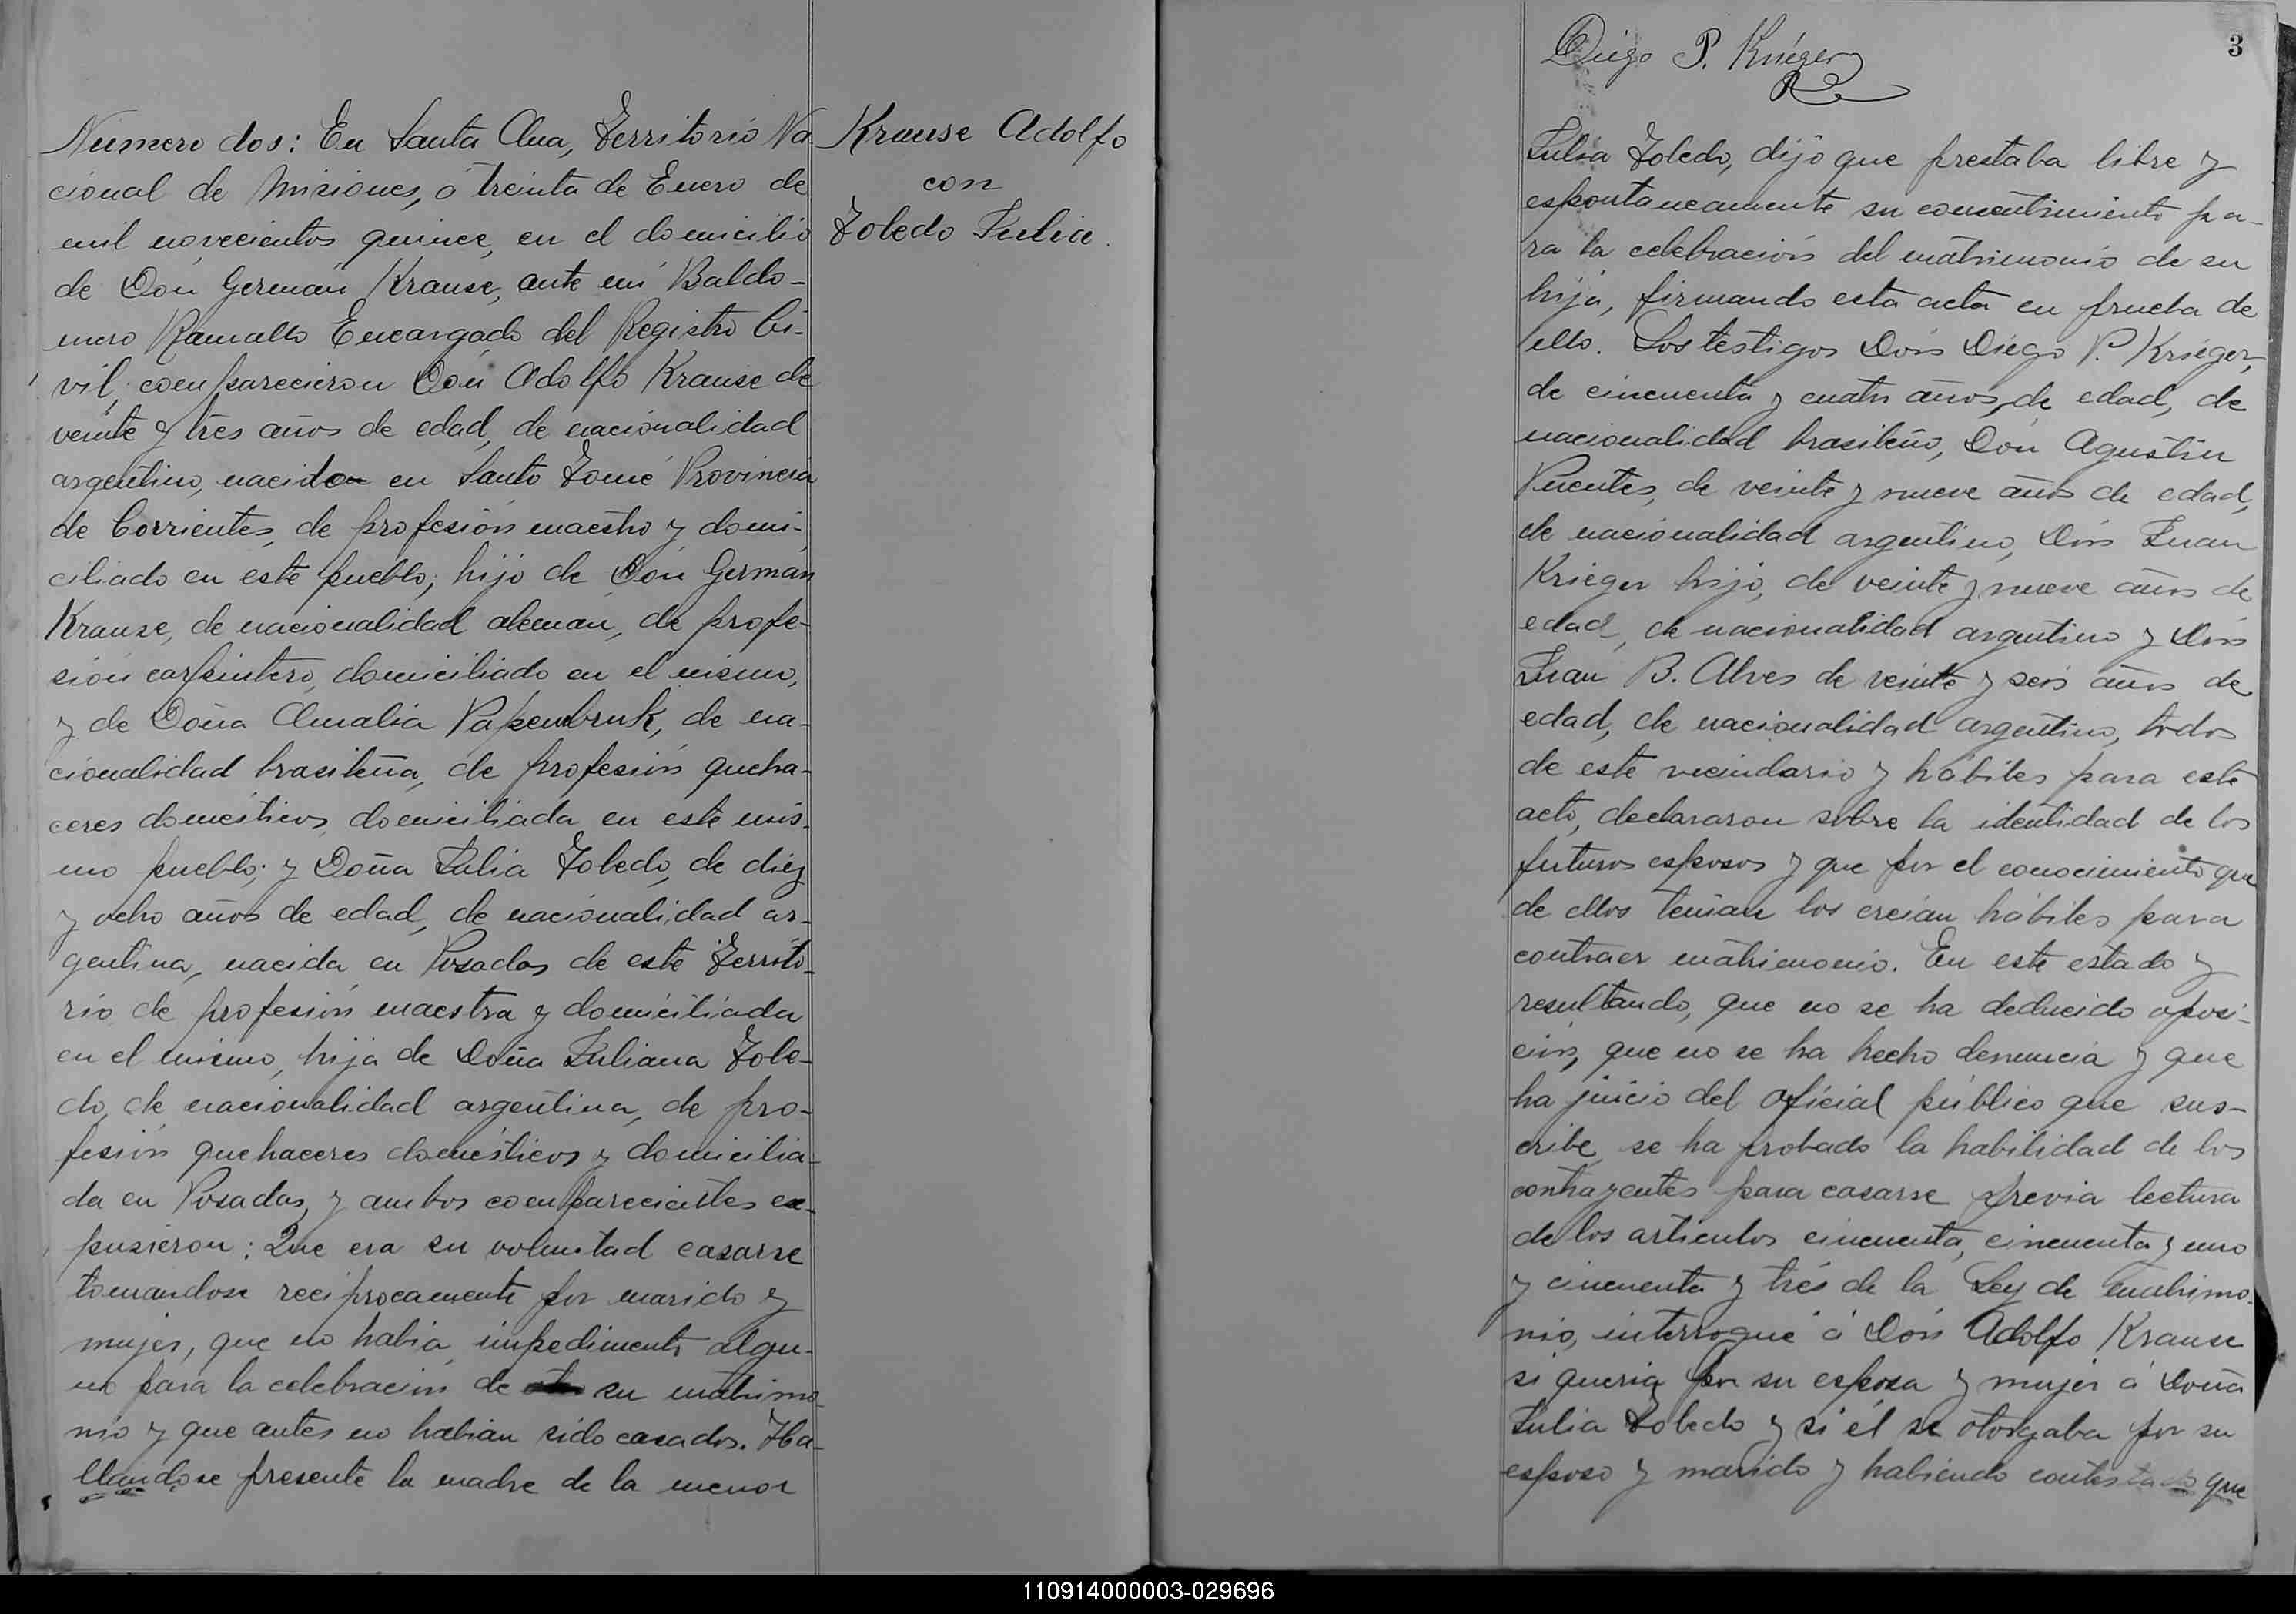 Número dos: En Santa Ana, Territorio Na
cional de Misiones, á treinta de Enero de
mil novecientos quince, en el domicilio
de Don Germán Krause, ante mí Baldo-
mero Ramallo Encargado del Registro Ci-
vil, comparecieron Don Adolfo Krause de
veinte y tres años de edad, de nacionalidad
argentino, nacido en Santo Tomé Provincia
de Corrientes, de profesión maestro y domi-
ciliado en este pueblo; hijo de Don Germán
Krause, de nacionalidad aleman, de profe-
sión carpintero, domiciliado en el mismo,
y de Doña Amalia Papenbruk, de na-
cionalidad brasileña, de profesión queha-
ceres domésticos, domiciliada en este mis-
mo pueblo; y Doña Julia Toledo, de diez
y ocho años de edad, de nacionalidad ar-
gentina, nacida en Posadas de este Territo-
rio de profesión maestra y domiciliada
en el mismo, hija de Doña Juliana Tole-
do, de nacionalidad argentina, de pro-
fesión quehaceres domésticos y domicilia-
da en Posadas, y ambos comparecientes ex-
pusieron: Que era su voluntad casarse
tomandose recíprocamente por marido y
mujer, que no había impedimento algu-
no para la celebración de su matrimo-
nio y que antes no habian sido casados. Ha-
llandose presente la madre de la menor
Krause Adolfo
con
Toledo Julia.
Diego P. Krieger
3
Julia Toledo, dijo que prestaba libre y
espontaneamente su consentimiento pa-
ra la celebración del matrimonio de su
hija, firmando esta acta en prueba de
ello. Los testigos Don Diego P. Krieger,
de cincuenta y cuatro años de edad, de
nacionalidad brasileño, Don Agustin
Puentes, de veinte y nueve años de edad,
de nacionalidad argentino, Don Juan
Krieger hijo, de veinte y nueve años de
edad, de nacionalidad argentino y Don
Juan B. Alves de veinte y seis años de
edad, de nacionalidad argentino, todos
de este vecindario y hábiles para este
acto, declararon sobre la identidad de los
futuros esposos y que por el conocimiento que
de ellos tenían los creían hábiles para
contraer matrimonio. En este estado y
resultando, que no se ha deducido oposi-
ción, que no se ha hecho denuncia y que
ha juicio del oficial público que sus-
cribe se ha probado la habilidad de los
contrayentes para casarse previa lectura
de los artículos cincuenta, cincuenta y uno
y cincuenta y trés de la Ley de matrimo-
nio, interrogué á Don Adolfo Krause
si quería por su esposa y mujer á Doña
Julia Toledo y si él se otorgaba por su
esposo y marido y habiendo contestado que
110914000003-029696